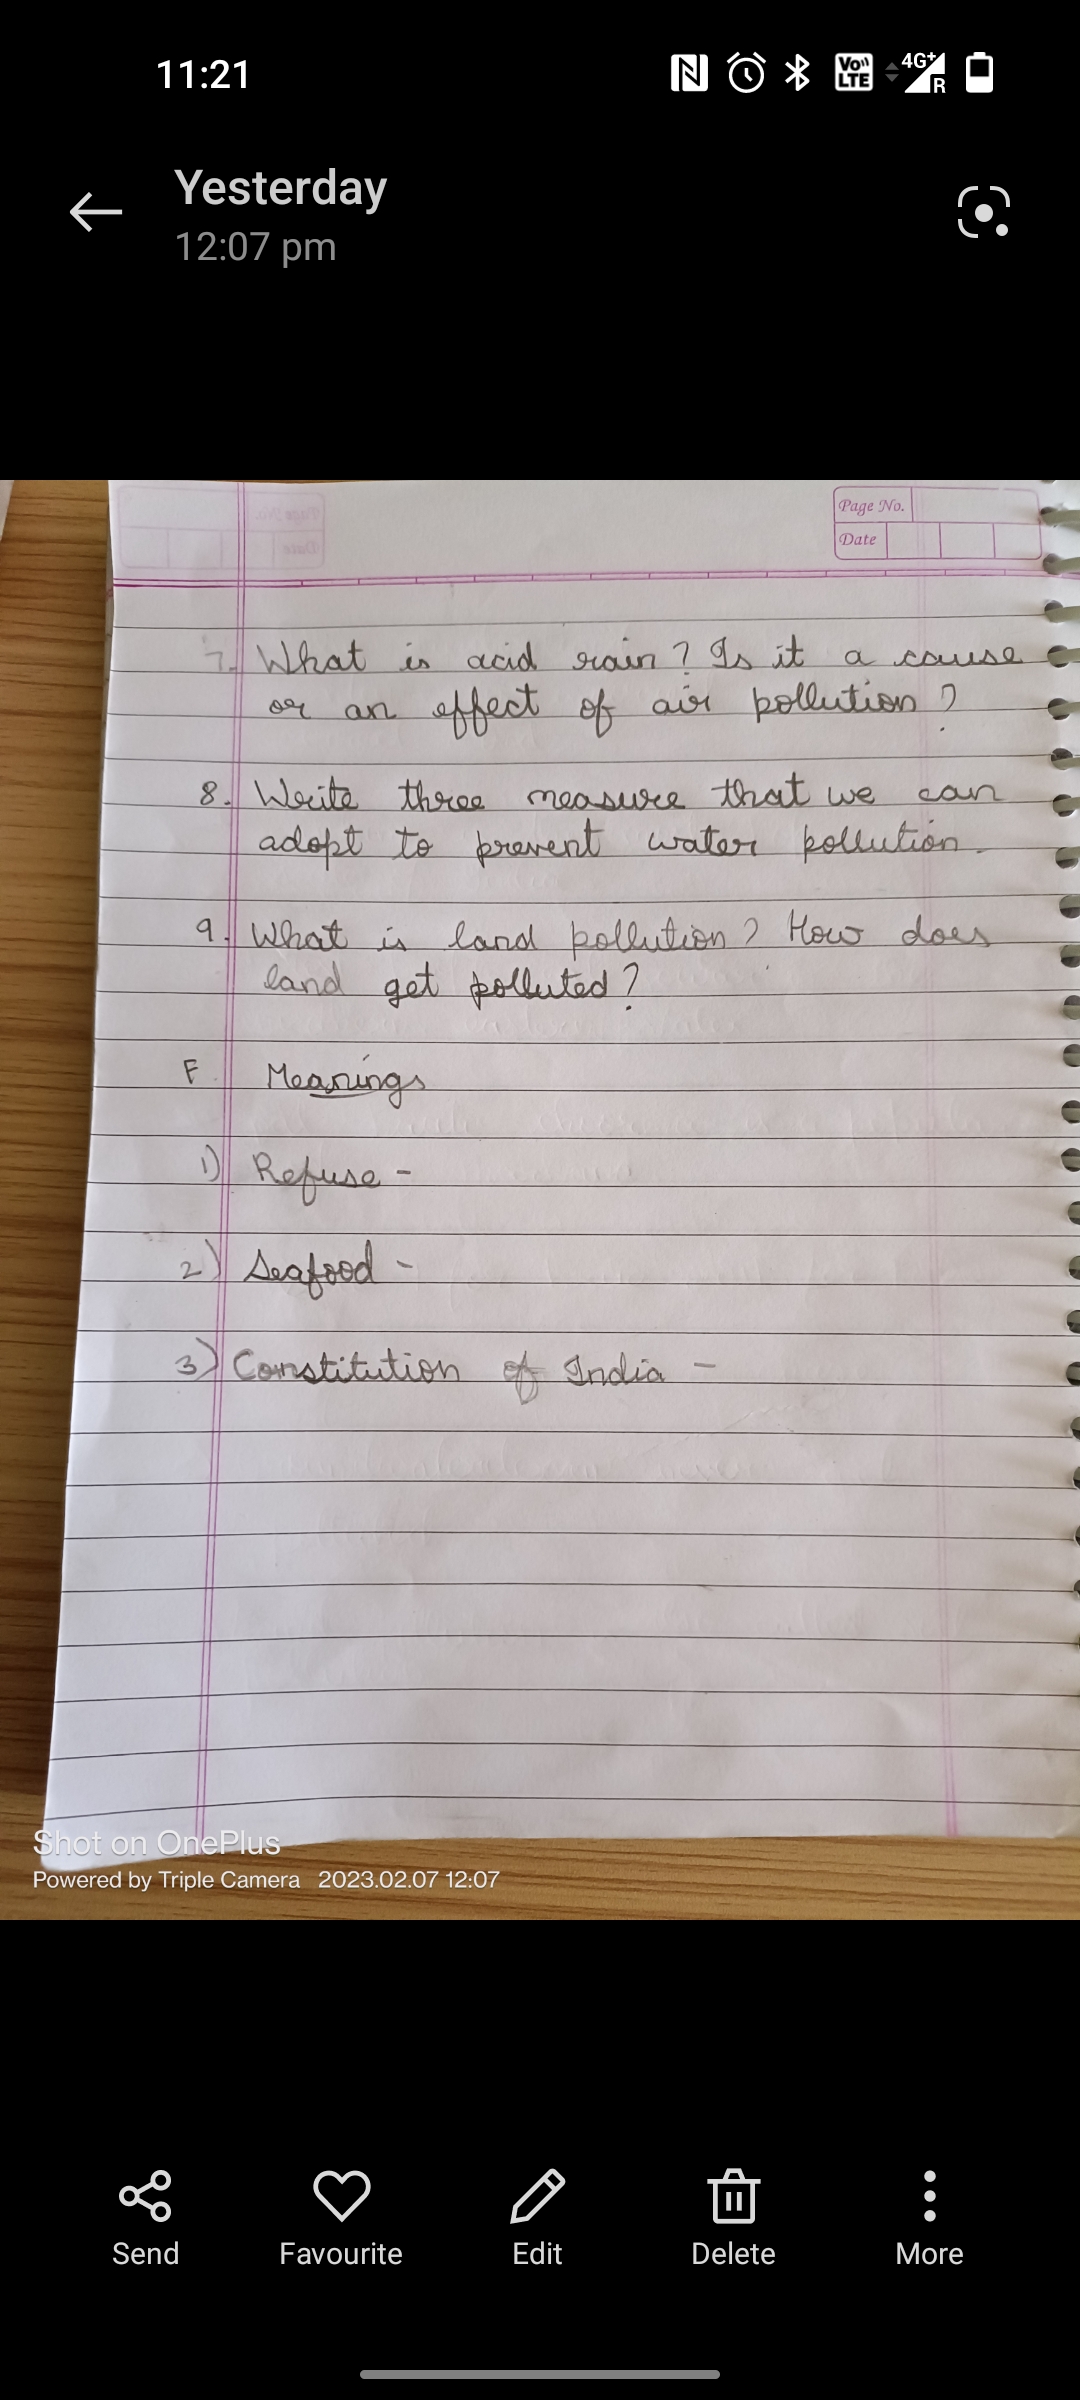 11:21
Vo)) LTE 4G+ R
Yesterday
12:07 pm
Page No.
Date
7. What is acid rain? Is it a cause
or an effect of air pollution?
8. Write three measure that we can
adopt to prevent water pollution.
9. What is land pollution? How does
land get polluted?
F. Meanings
1) Refuse -
2) Seafood -
3) Constitution of India -
Shot on OnePlus
Powered by Triple Camera 2023.02.07 12:07
Send Favourite Edit Delete More